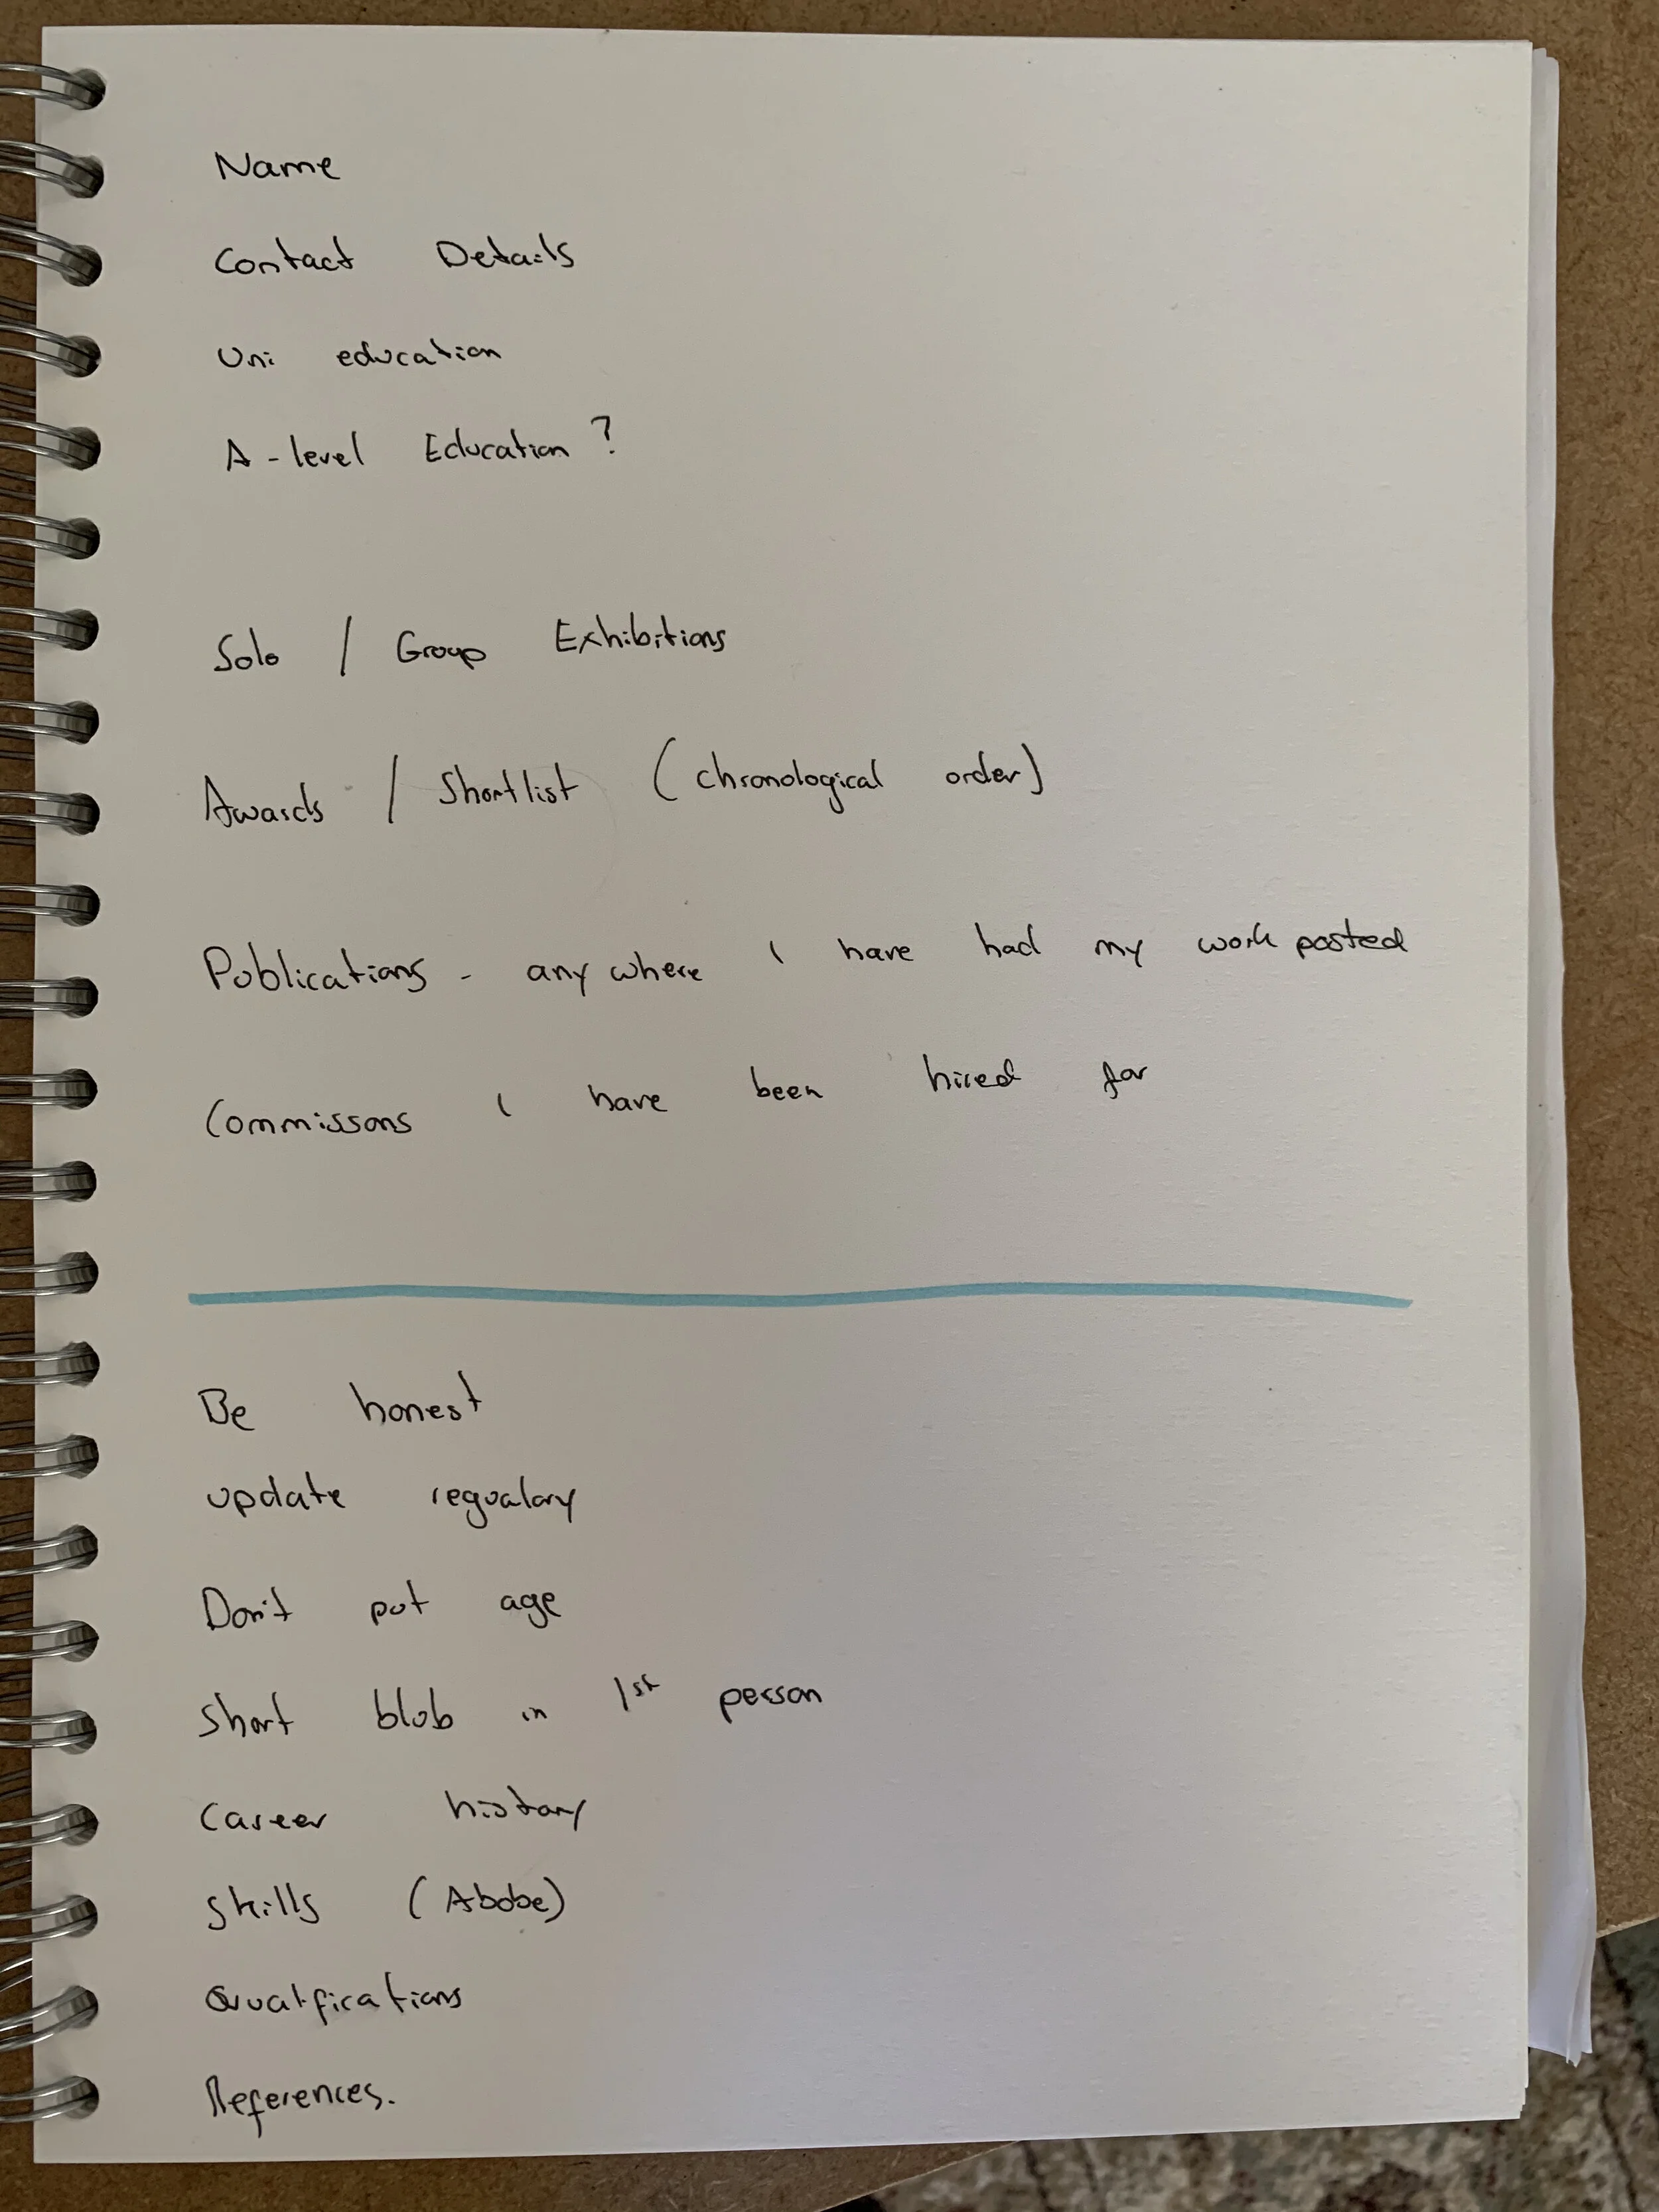 Name
Contact Details
Uni education
A-level Education?
Solo / Group Exhibitions
Awards / Shortlist (chronological order)
Publications - anywhere I have had my work posted
Commissons I have been hired for
Be honest
update regualary
Don't put age
Short blob in 1st person
Career history
Skills (Abobe)
Qualifications
References.